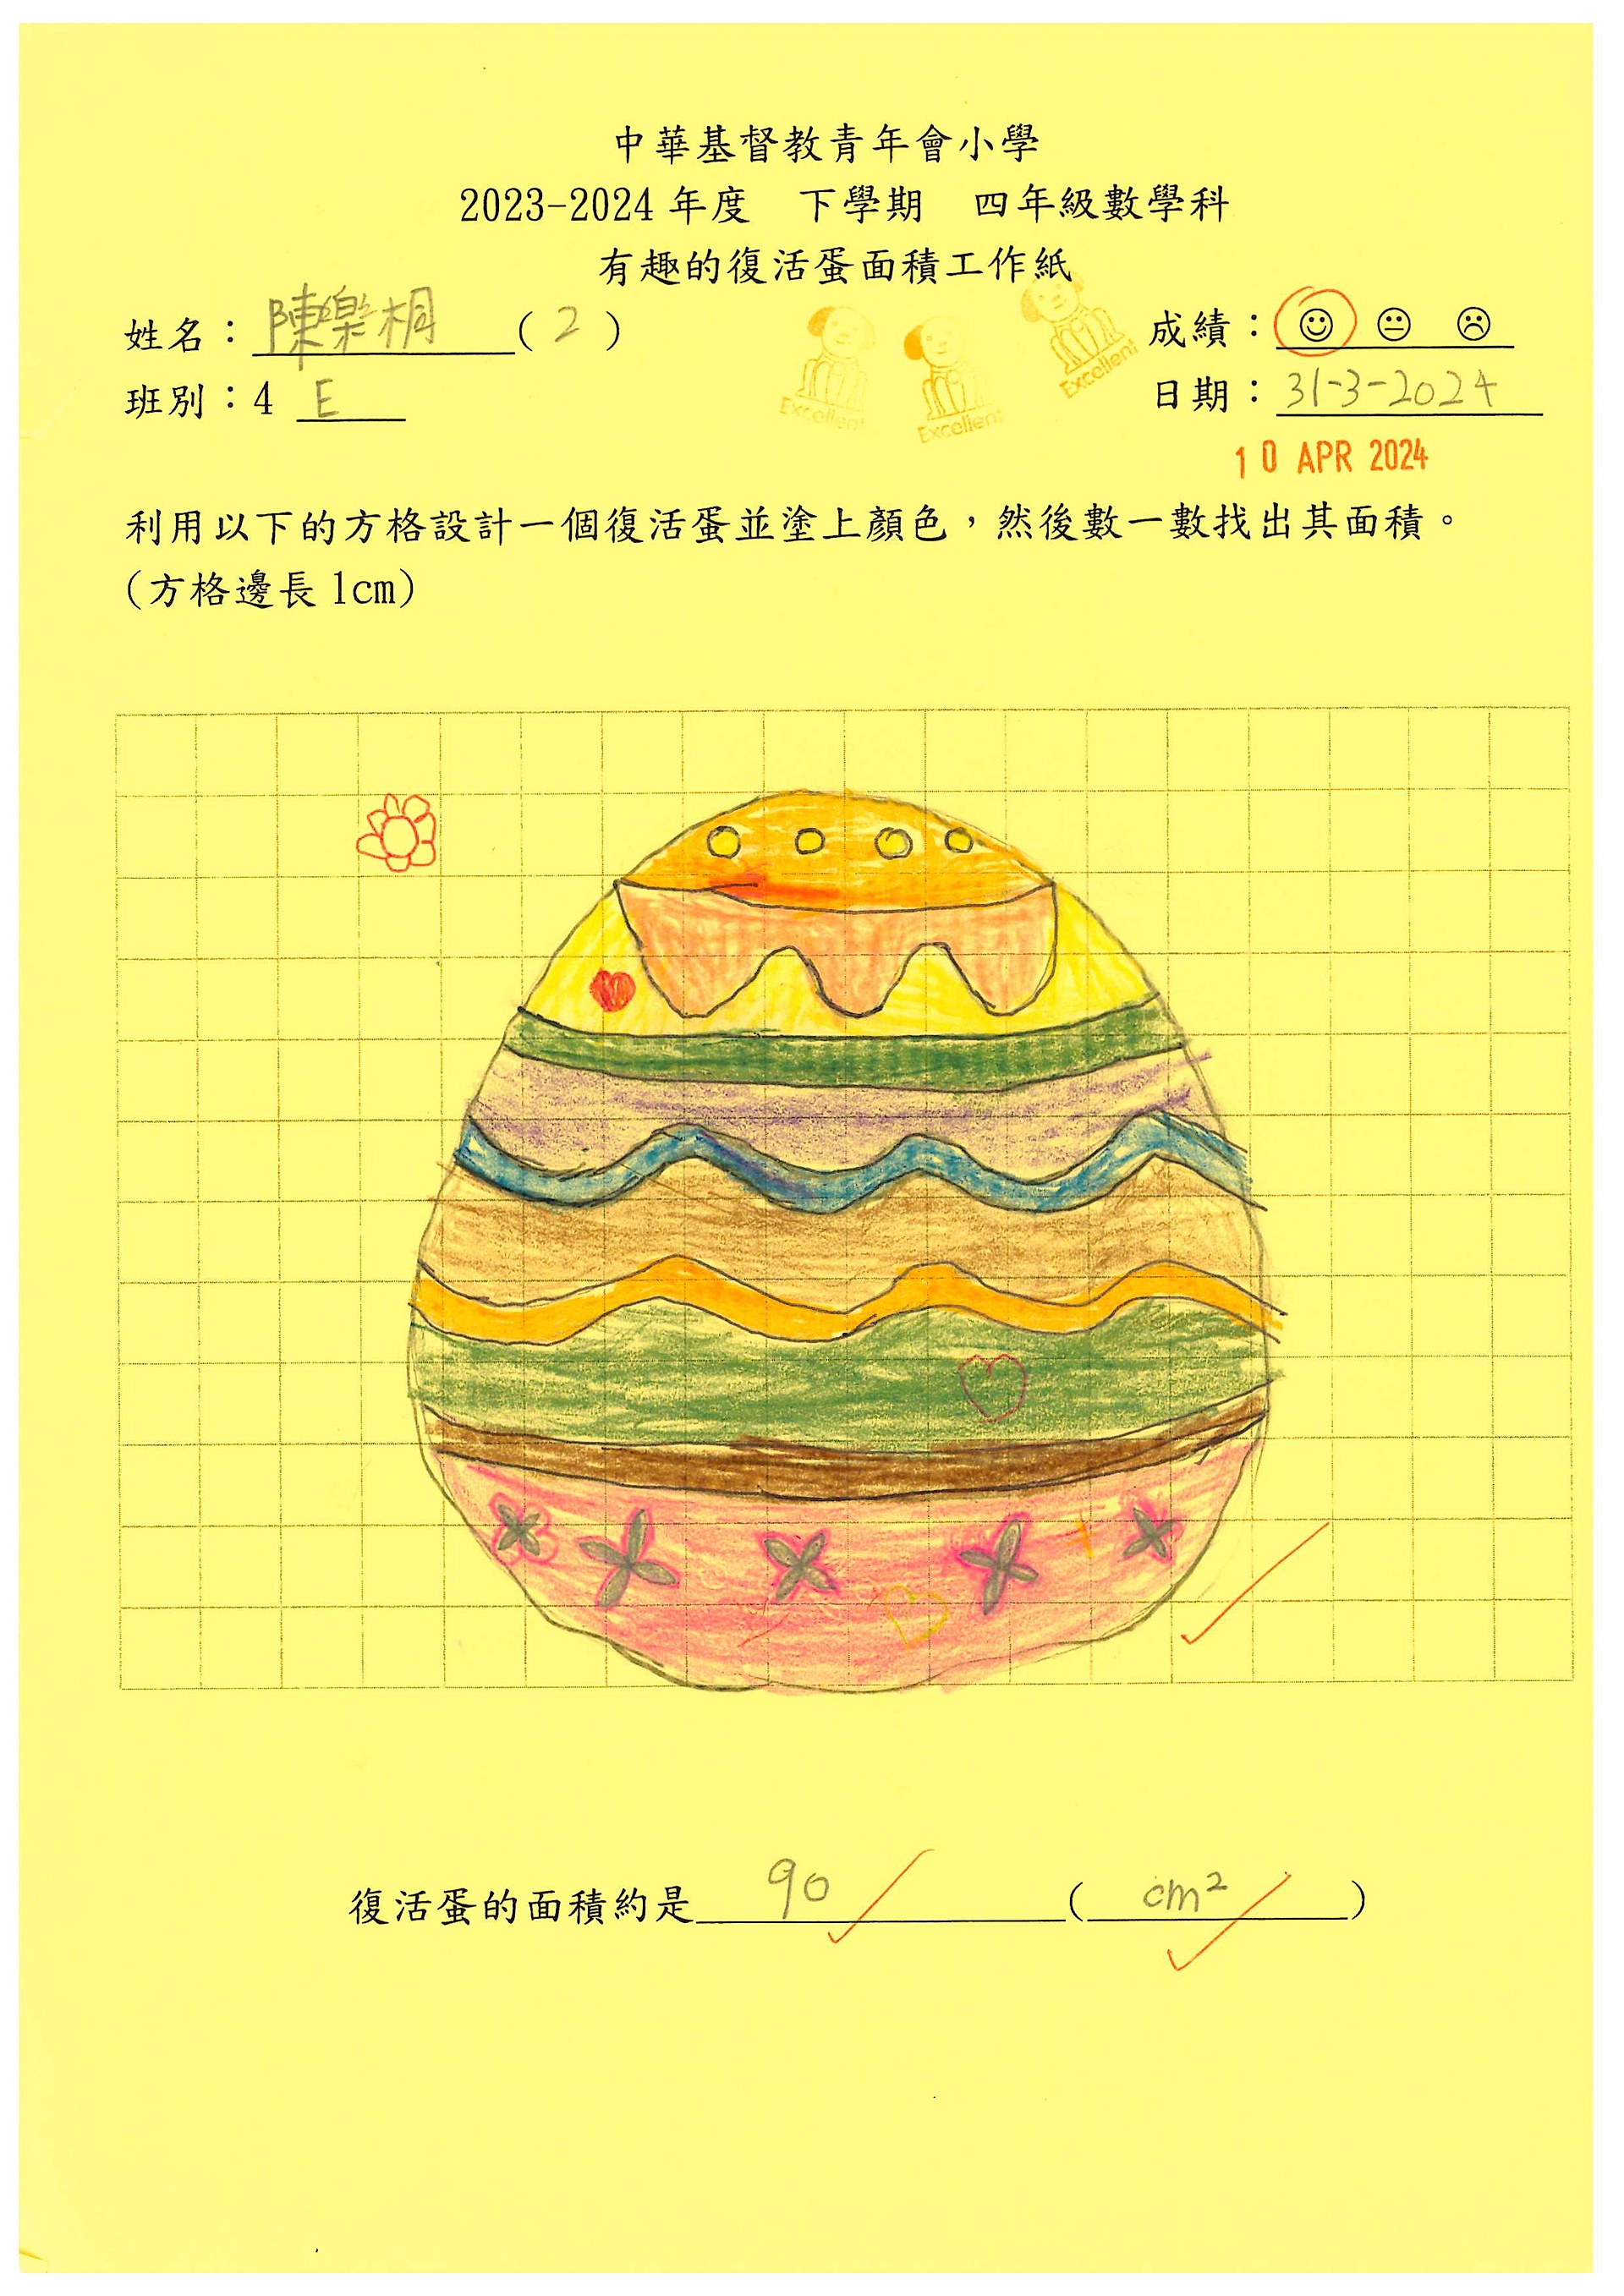 中華基督教青年會小學
2023-2024 年度 下學期 四年級數學科
有趣的復活蛋面積工作紙
姓名：陳樂桐(2) 成績：☺ 😐 ☹
班別：4 E 日期：31-3-2024
Excellent Excellent Excellent
10 APR 2024
利用以下的方格設計一個復活蛋並塗上顏色，然後數一數找出其面積。
(方格邊長 1cm)
復活蛋的面積約是 90 (cm²)